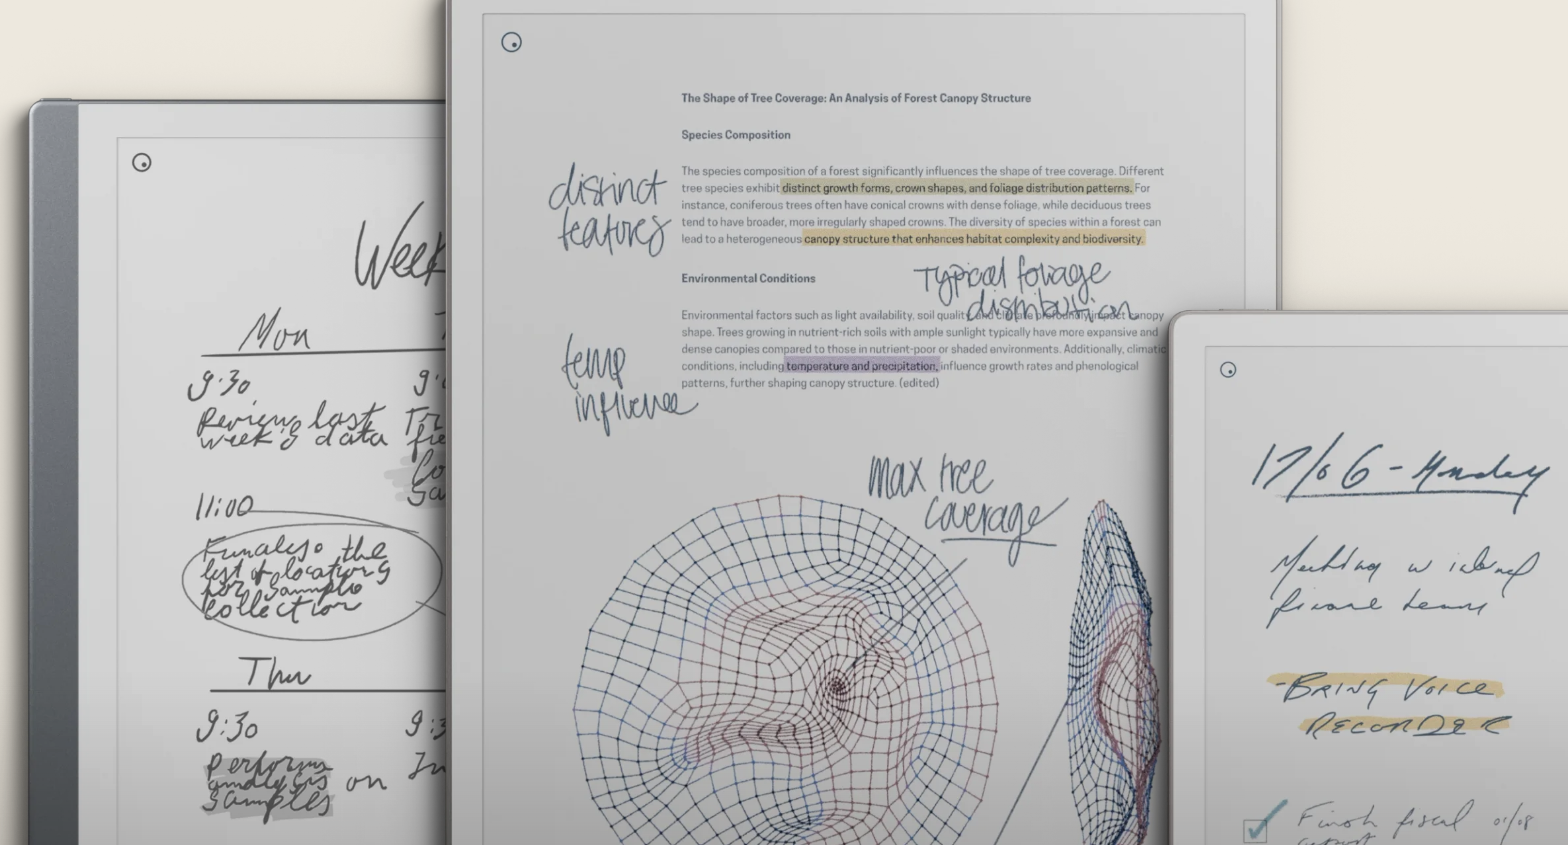 Week
Mon
9:30
Review last
week's data
11:00
Finalise the
list of locations
for sample
collection
Thu
9:30
Perform
analysis on
samples
The Shape of Tree Coverage: An Analysis of Forest Canopy Structure
Species Composition
distinct
features
The species composition of a forest significantly influences the shape of tree coverage. Different
tree species exhibit distinct growth forms, crown shapes, and foliage distribution patterns. For
instance, coniferous trees often have conical crowns with dense foliage, while deciduous trees
tend to have broader, more irregularly shaped crowns. The diversity of species within a forest can
lead to a heterogeneous canopy structure that enhances habitat complexity and biodiversity.
Typical foliage
distribution
Environmental Conditions
Environmental factors such as light availability, soil quality, and climate profoundly impact canopy
shape. Trees growing in nutrient-rich soils with ample sunlight typically have more expansive and
dense canopies compared to those in nutrient-poor or shaded environments. Additionally, climatic
conditions, including temperature and precipitation, influence growth rates and phenological
patterns, further shaping canopy structure. (edited)
temp
influence
max tree
coverage
17/06 - Monday
Meeting w
-BRING VOICE
RECORDER
Finish fiscal